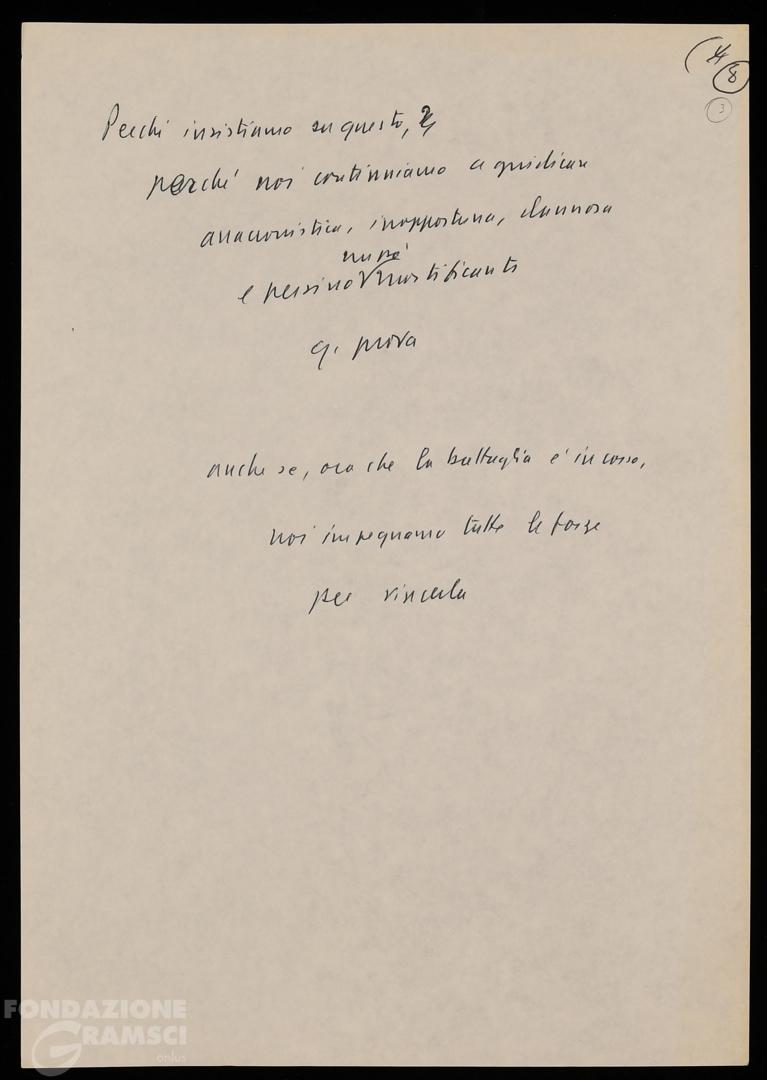 (4
8
3
Perché insistiamo su questo, ?
perché noi continuiamo a giudicare
anacronistica, inopportuna, dannosa
e persino mortificante
q. prova
anche se, ora che la battaglia è in corso,
noi impegnamo tutte le forze
per vincerla
FONDAZIONE
GRAMSCI
onlus